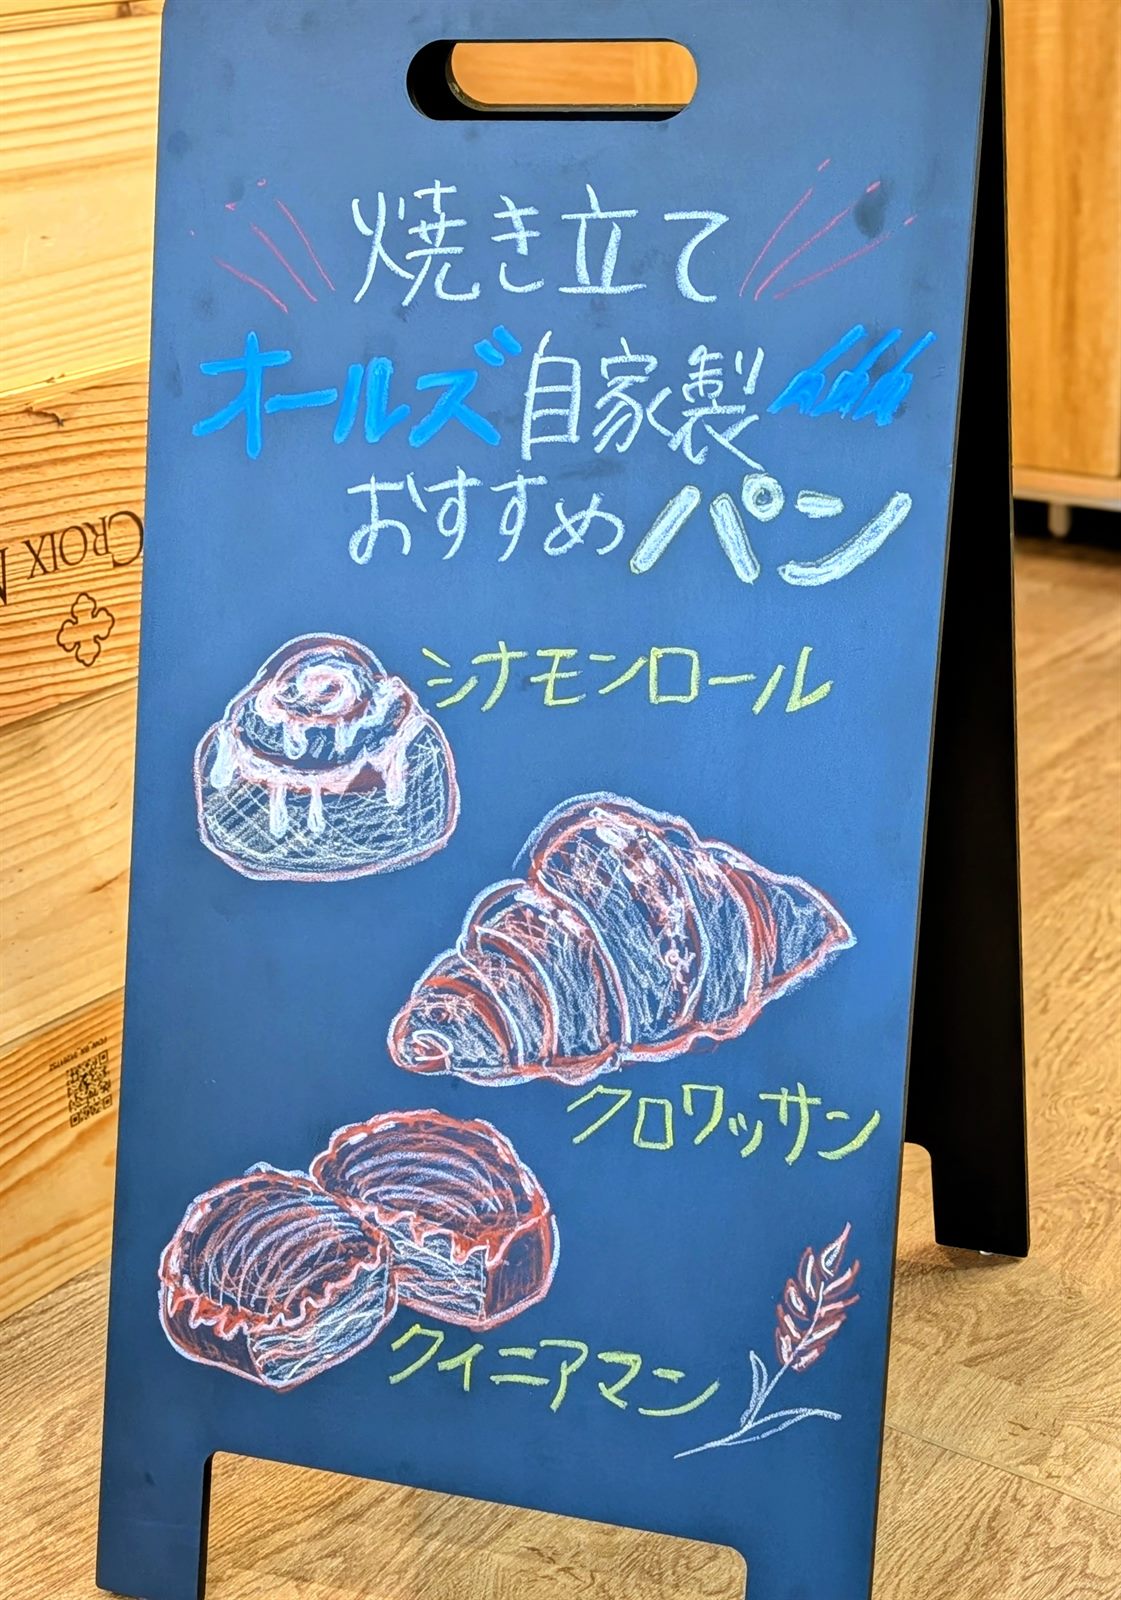 焼き立て
オールズ自家製
おすすめパン
シナモンロール
クロワッサン
クイニアマン
CROIX